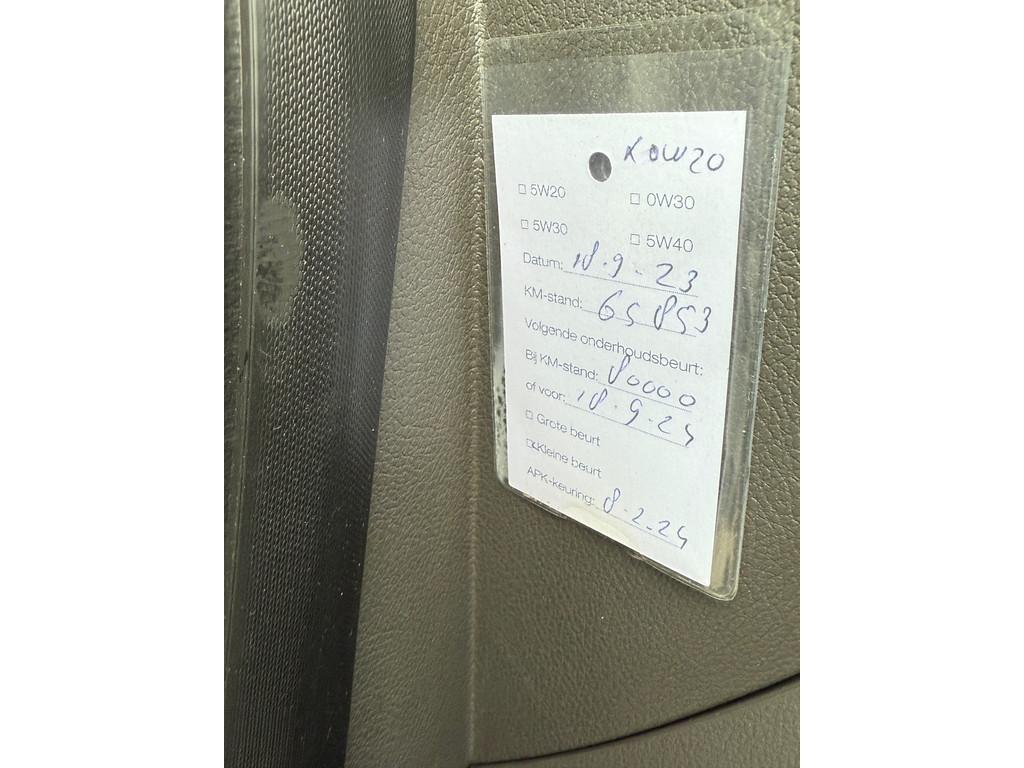 x 0W20
☐ 5W20 ☐ 0W30
☐ 5W30 ☐ 5W40
Datum: 18.9-23
KM-stand: 65853
Volgende onderhoudsbeurt:
Bij KM-stand: 80000
of voor: 18.9-25
☐ Grote beurt
☒ Kleine beurt
APK-keuring: 8.2-25